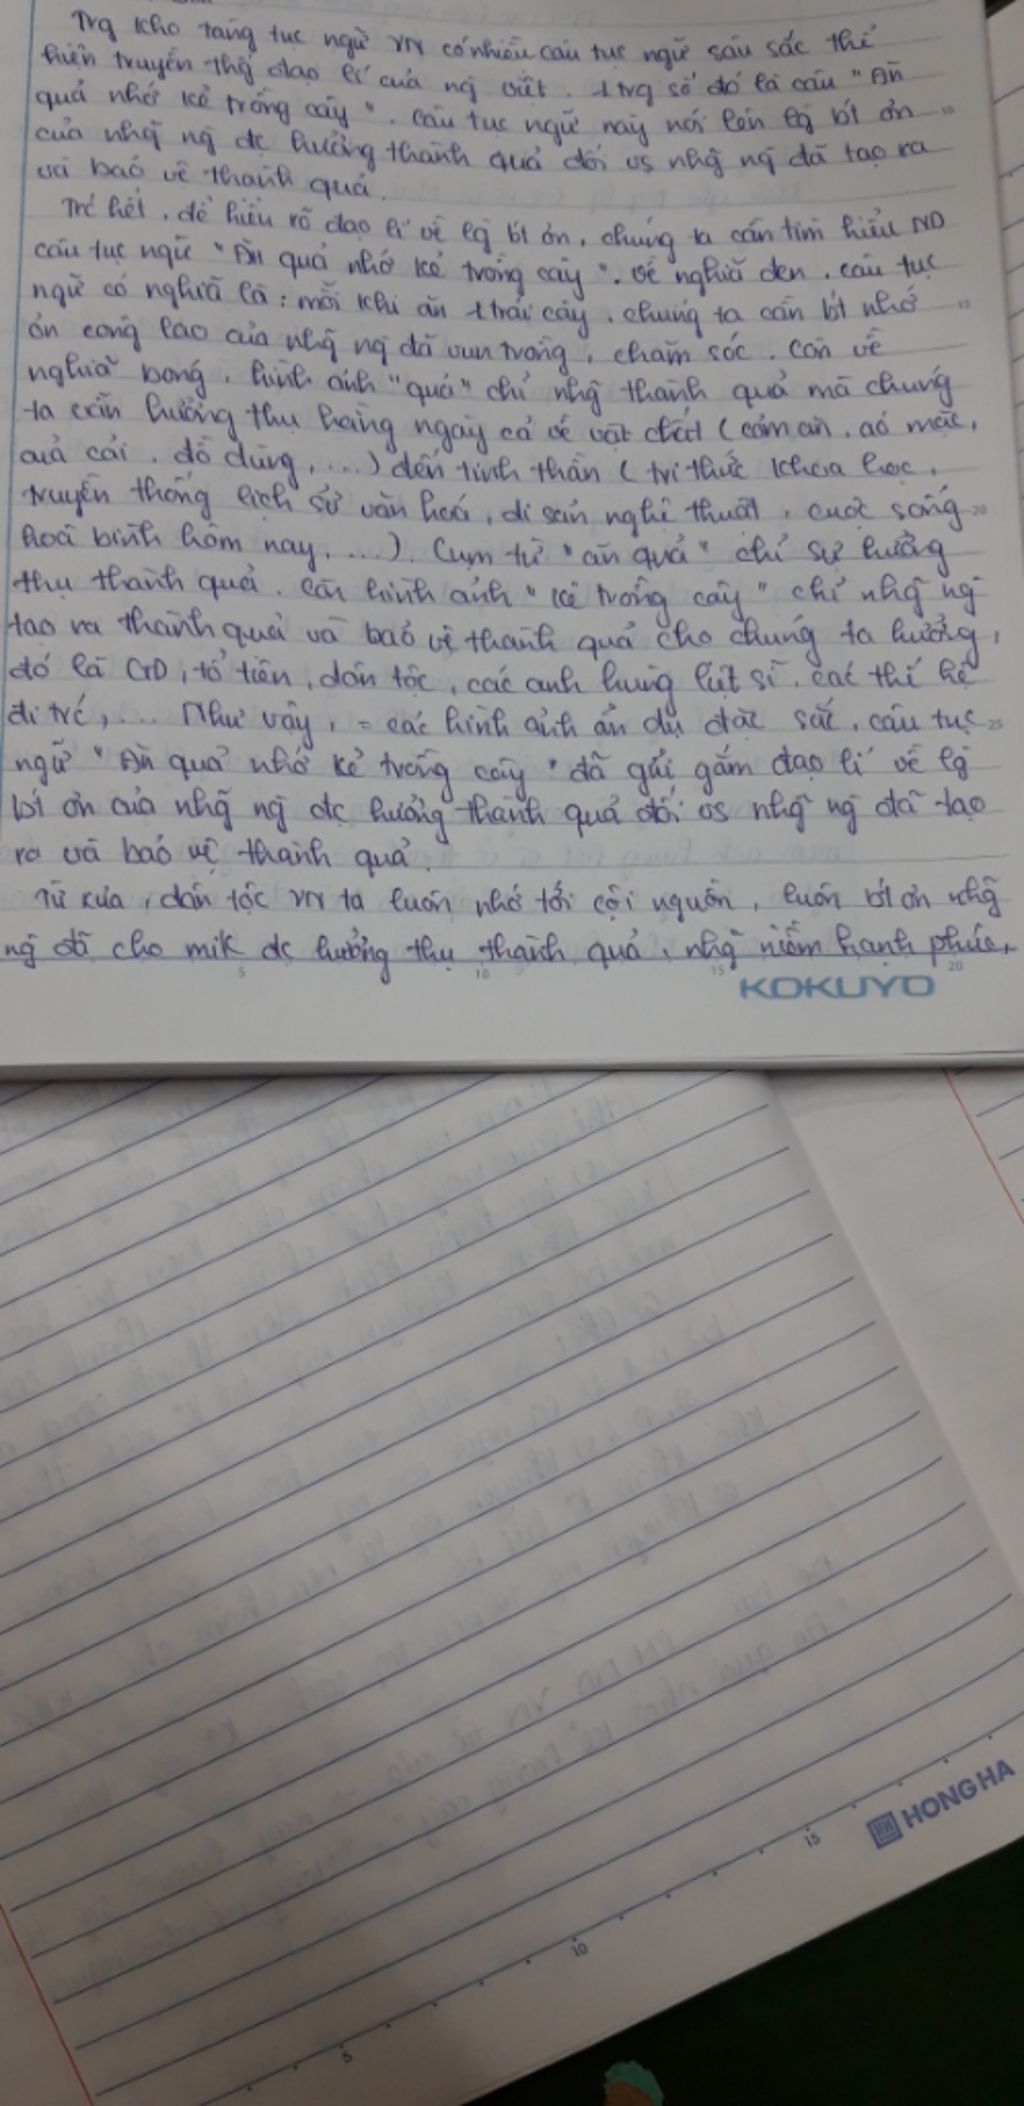 Trg kho tàng tục ngữ VN có nhiều câu tục ngữ sâu sắc thể
hiện truyền thg đạo lí của ng Việt. 1 trg số đó là câu "Ăn
quả nhớ kẻ trồng cây". Câu tục ngữ này nói lên lg bt ơn
của nhg ng đc hưởng thành quả đối vs nhg ng đã tạo ra
và bảo vệ thành quả.
Trc hết, để hiểu rõ đạo lí về lg bt ơn, chúng ta cần tìm hiểu ND
câu tục ngữ "Ăn quả nhớ kẻ trồng cây". Về nghĩa đen, câu tục
ngữ có nghĩa là: mỗi khi ăn 1 trái cây, chúng ta cần bt nhớ
ơn công lao của nhg ng đã vun trồng, chăm sóc. Còn về
nghĩa bóng, hình ảnh "quả" chỉ nhg thành quả mà chúng
ta hưởng thụ hàng ngày cả về vật chất (cơm ăn, áo mặc,
của cải, đồ dùng, ...) đến tinh thần (tri thức khoa học,
truyền thống lịch sử văn hoá, di sản nghệ thuật, cuộc sống
hoà bình hôm nay, ...). Cụm từ "ăn quả" chỉ sự hưởng
thụ thành quả. Còn hình ảnh "kẻ trồng cây" chỉ nhg ng
tạo ra thành quả và bảo vệ thành quả cho chúng ta hưởng,
đó là GĐ, tổ tiên, dân tộc, các anh hùng liệt sĩ, các thế hệ
đi trc, ... Như vậy, = các hình ảnh ẩn dụ đặc sắc, câu tục
ngữ "Ăn quả nhớ kẻ trồng cây" đã gửi gắm đạo lí về lg
bt ơn của nhg ng đc hưởng thành quả đối vs nhg ng đã tạo
ra và bảo vệ thành quả.
Từ xưa, dân tộc VN ta luôn nhớ tới cội nguồn, luôn bt ơn nhg
ng đã cho mik đc hưởng thụ thành quả, nhg niềm hạnh phúc,
5 10 15 20
KOKUYO
HONG HA
5 10 15